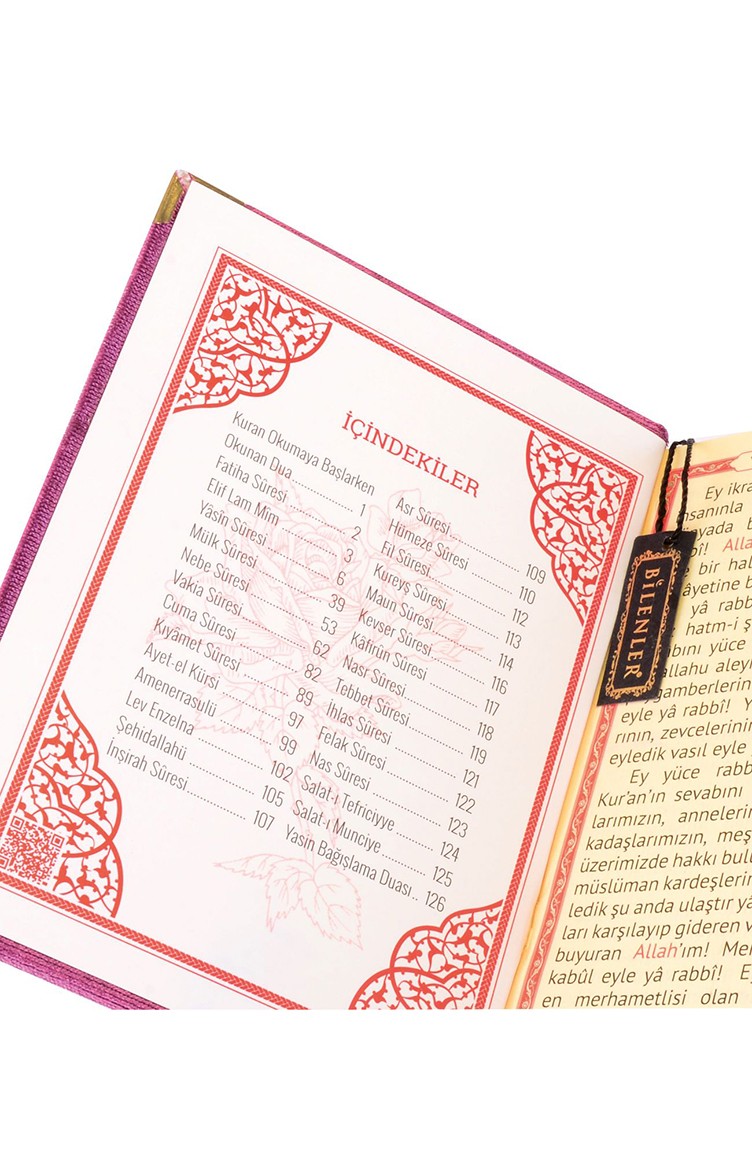 İÇİNDEKİLER
Kuran Okumaya Başlarken
Okunan Dua 1
Fatiha Sûresi 2
Elif Lam Mim 3
Yâsîn Sûresi 6
Mülk Sûresi 39
Nebe Sûresi 53
Vakıa Sûresi 62
Cuma Sûresi 82
Kıyâmet Sûresi 89
Ayet-el Kürsi 97
Amenerrasulü 99
Lev Enzelna 102
Şehidallahü 105
İnşirah Sûresi 107
Asr Sûresi 109
Hümeze Sûresi 110
Fil Sûresi 112
Kureyş Sûresi 113
Maun Sûresi 114
Kevser Sûresi 116
Kâfirûn Sûresi 117
Nasr Sûresi 118
Tebbet Sûresi 119
İhlas Sûresi 121
Felak Sûresi 122
Nas Sûresi 123
Salat-ı Tefriciyye 124
Salat-ı Munciye 125
Yasin Bağışlama Duası 126
BİLENLER
Ey
bir
yâ rabb
hatm-i
yüce
eyle yâ rabbî!
zevcelerinin
eyledik vasıl eyle
Ey yüce rabb
Kur'an'ın sevabını
larımızın,
kadaşlarımızın,
üzerimizde hakkı
müslüman
ledik şu anda ulaştır
ları karşılayıp gideren
buyuran Allah'ım!
kabûl eyle yâ rabbî!
en merhametlisi olan